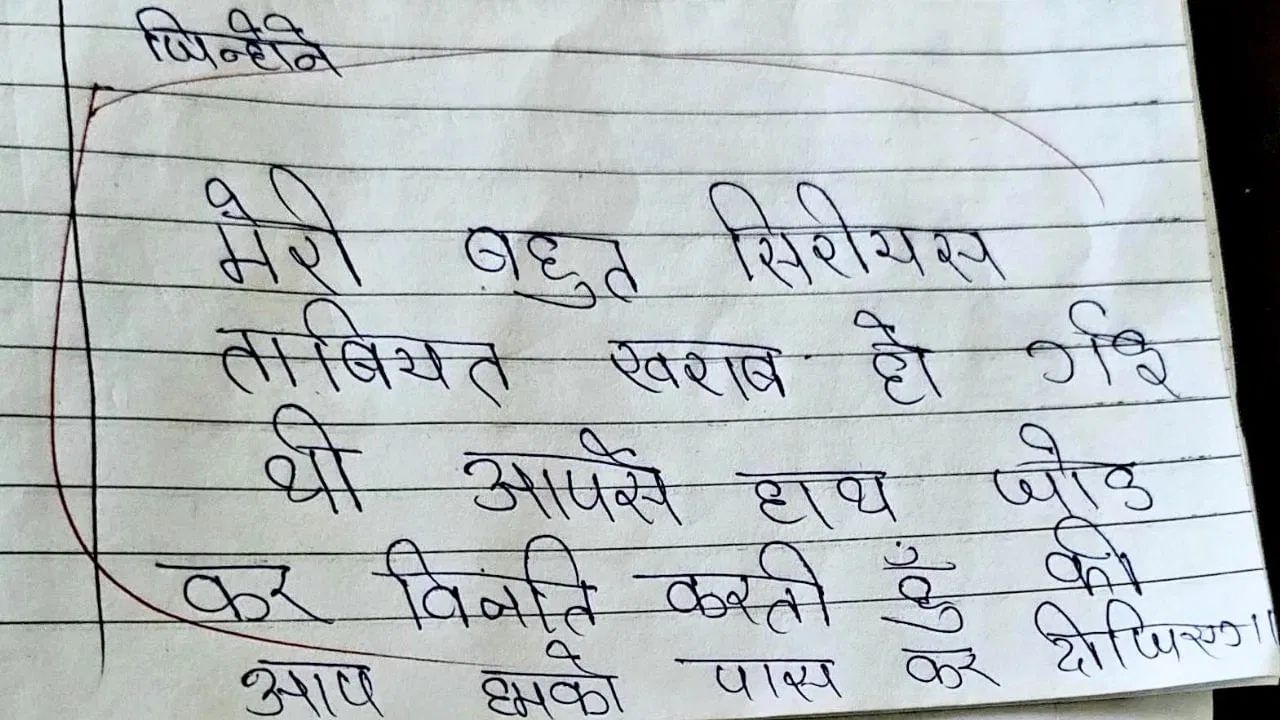 जिन्होंने
मेरी बहुत सिरीयस
ताबियत खराब हो गई
थी आपसे हाथ जोड
कर विनति करती हुँ की
आप हमको पास कर दीजिएगा॥